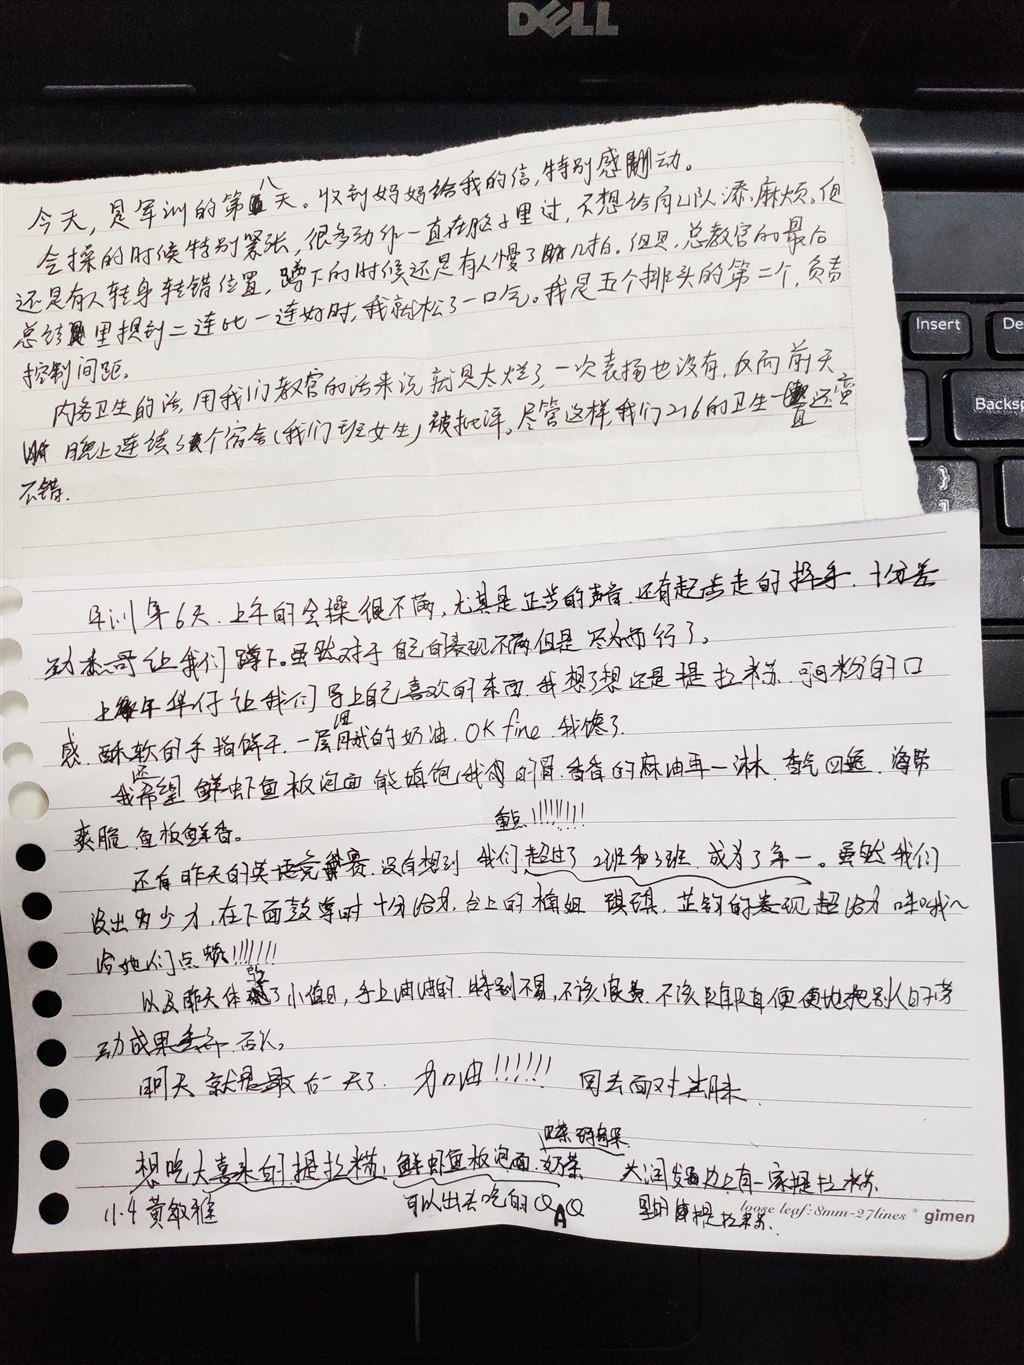 DELL
Insert
De
Backsp
今天,是军训的第八天。收到妈妈给我的信,特别感动。
会操的时候特别紧张,很多动作一直在脑子里过,不想给向山队添麻烦。但
还是有人转身转错位置,蹲下的时候还是有人慢了几拍。但是,总教官的最后
总结里提到二连比一连好时,我就松了一口气。我是五个排头的第二个,负责
控制间距。
内务卫生的话,用我们教官的话来说就是太烂了,一次表扬也没有,反而前天
晚上连续个宿舍(我们班女生)被批评。尽管这样,我们216的卫生一直还蛮
不错。
军训第6天,上午的会操很不满,尤其是正步的声音,还有起步走的摆手,十分差
劲,杰哥让我们蹲下。虽然对于自己的表现不满但是尽力而行了。
上午华仔让我们写上自己喜欢的东西,我想了想还是提拉米苏,可可粉的口
感,酥软的手指饼干,一层的奶油,OK fine,我馋了。
我还希望鲜虾鱼板泡面能填饱我的胃,香香的麻油再一淋,香气四逸,海带
爽脆,鱼板鲜香。
重点!!!!!!!!
还有昨天的英语竞赛,没有想到我们超过了2班和3班,成为了第一。虽然我们
没出多少力,在下面鼓掌时十分给力,台上的楠姐,琪琪,芷钧的表现超给力
给他们点赞!!!!!!!
以及昨天体验了小值日,手上油油的,特别不易,不该浪费,不该随随便便地把别人的劳
动成果丢弃,否认。
明天就是最后一天了,加油!!!!!! 回去面对生活
想吃大喜来的提拉米苏,鲜虾鱼板泡面,奶茶 大润发边上有一家提拉米苏
11.4 黄敏雅 可以出去吃的QAQ
loose leaf:8mm-27lines * gimen